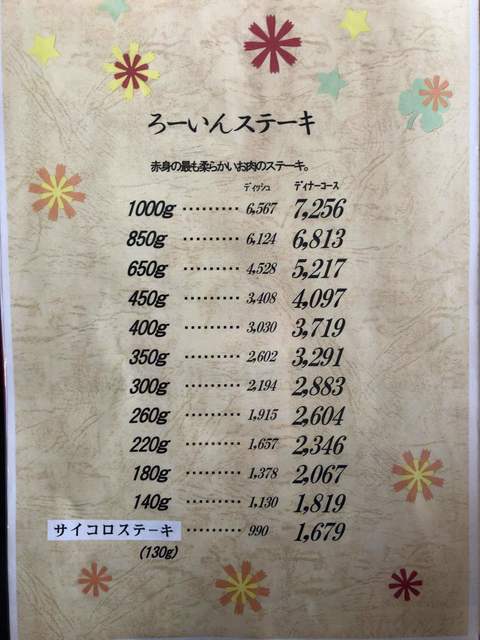 ろーいんステーキ
赤身の最も柔らかいお肉のステーキ。
ディッシュ ディナーコース
1000g ......... 6,567 7,256
850g ......... 6,124 6,813
650g ......... 4,528 5,217
450g ......... 3,408 4,097
400g ......... 3,030 3,719
350g ......... 2,602 3,291
300g ......... 2,194 2,883
260g ......... 1,915 2,604
220g ......... 1,657 2,346
180g ......... 1,378 2,067
140g ......... 1,130 1,819
サイコロステーキ ......... 990 1,679
(130g)